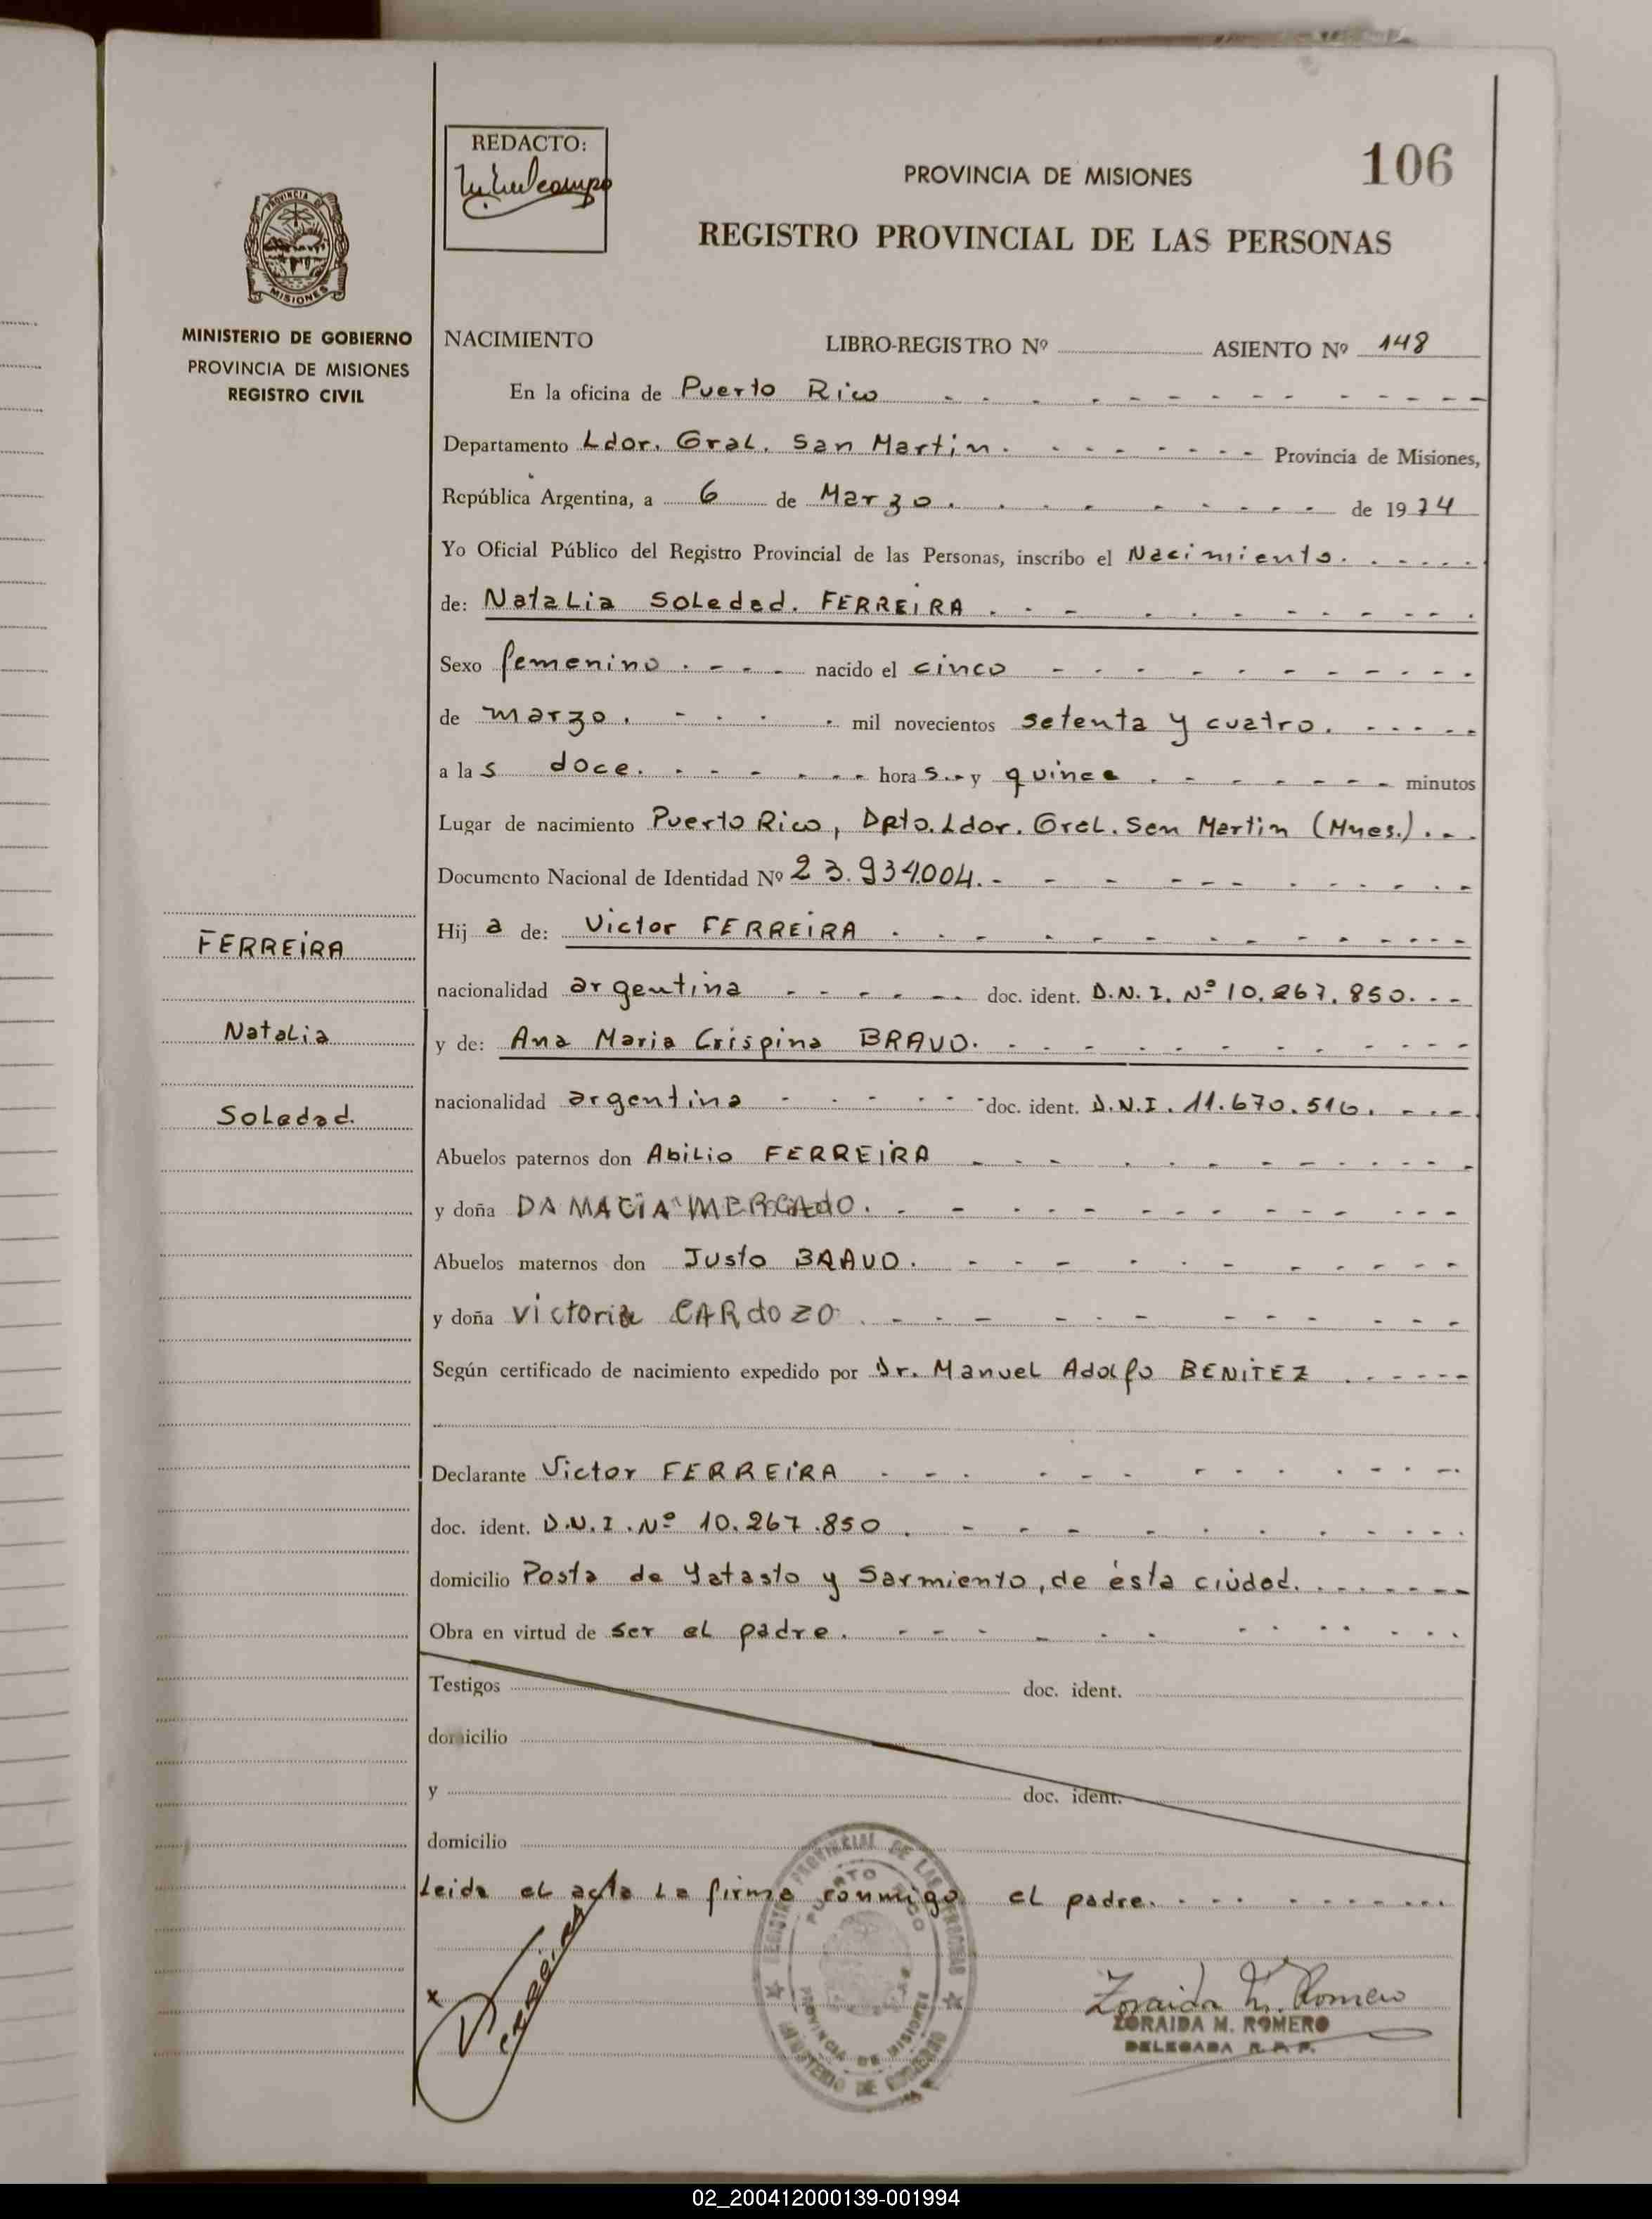 REDACTO:
PROVINCIA DE MISIONES
106
REGISTRO PROVINCIAL DE LAS PERSONAS
PROVINCIA DE
MISIONES
MINISTERIO DE GOBIERNO
PROVINCIA DE MISIONES
REGISTRO CIVIL
NACIMIENTO LIBRO-REGISTRO Nº ASIENTO Nº 148
En la oficina de Puerto Rico
Departamento Ldor. Gral. San Martin. Provincia de Misiones,
República Argentina, a 6 de Marzo. de 1974
Yo Oficial Público del Registro Provincial de las Personas, inscribo el Nacimiento.
de: Natalia Soledad. FERREIRA.
Sexo femenino. nacido el cinco
de marzo. mil novecientos setenta y cuatro.
a las doce. horas. y quince. minutos
Lugar de nacimiento Puerto Rico, Dpto. Ldor. Gral. San Martin (Mnes.).
Documento Nacional de Identidad Nº 23.934.004.
Hija de: Victor FERREIRA.
nacionalidad argentina doc. ident. D.N.I. Nº 10.267.850.
y de: Ana Maria Crispina BRAVO.
nacionalidad argentina doc. ident. D.N.I. 11.670.516.
Abuelos paternos don Abilio FERREIRA
y doña DAMACIA MERCADO.
Abuelos maternos don Justo BRAVO.
y doña victoria CARdOZO.
Según certificado de nacimiento expedido por Dr. Manuel Adolfo BENITEZ
Declarante Victor FERREIRA
doc. ident. D.N.I. Nº 10.267.850.
domicilio Posta de Yatasto y Sarmiento, de ésta ciudad.
Obra en virtud de ser el padre.
Testigos doc. ident.
domicilio
y doc. ident.
domicilio
Leida el acta la firma conmigo el padre.
FERREIRA
Natalia
Soledad.
x
REGISTRO PROVINCIAL DE LAS PERSONAS
PUERTO RICO
PROVINCIA DE MISIONES
MINISTERIO DE GOBIERNO
Zoraida M. Romero
ZORAIDA M. ROMERO
DELEGADA R.P.P.
02_200412000139-001994